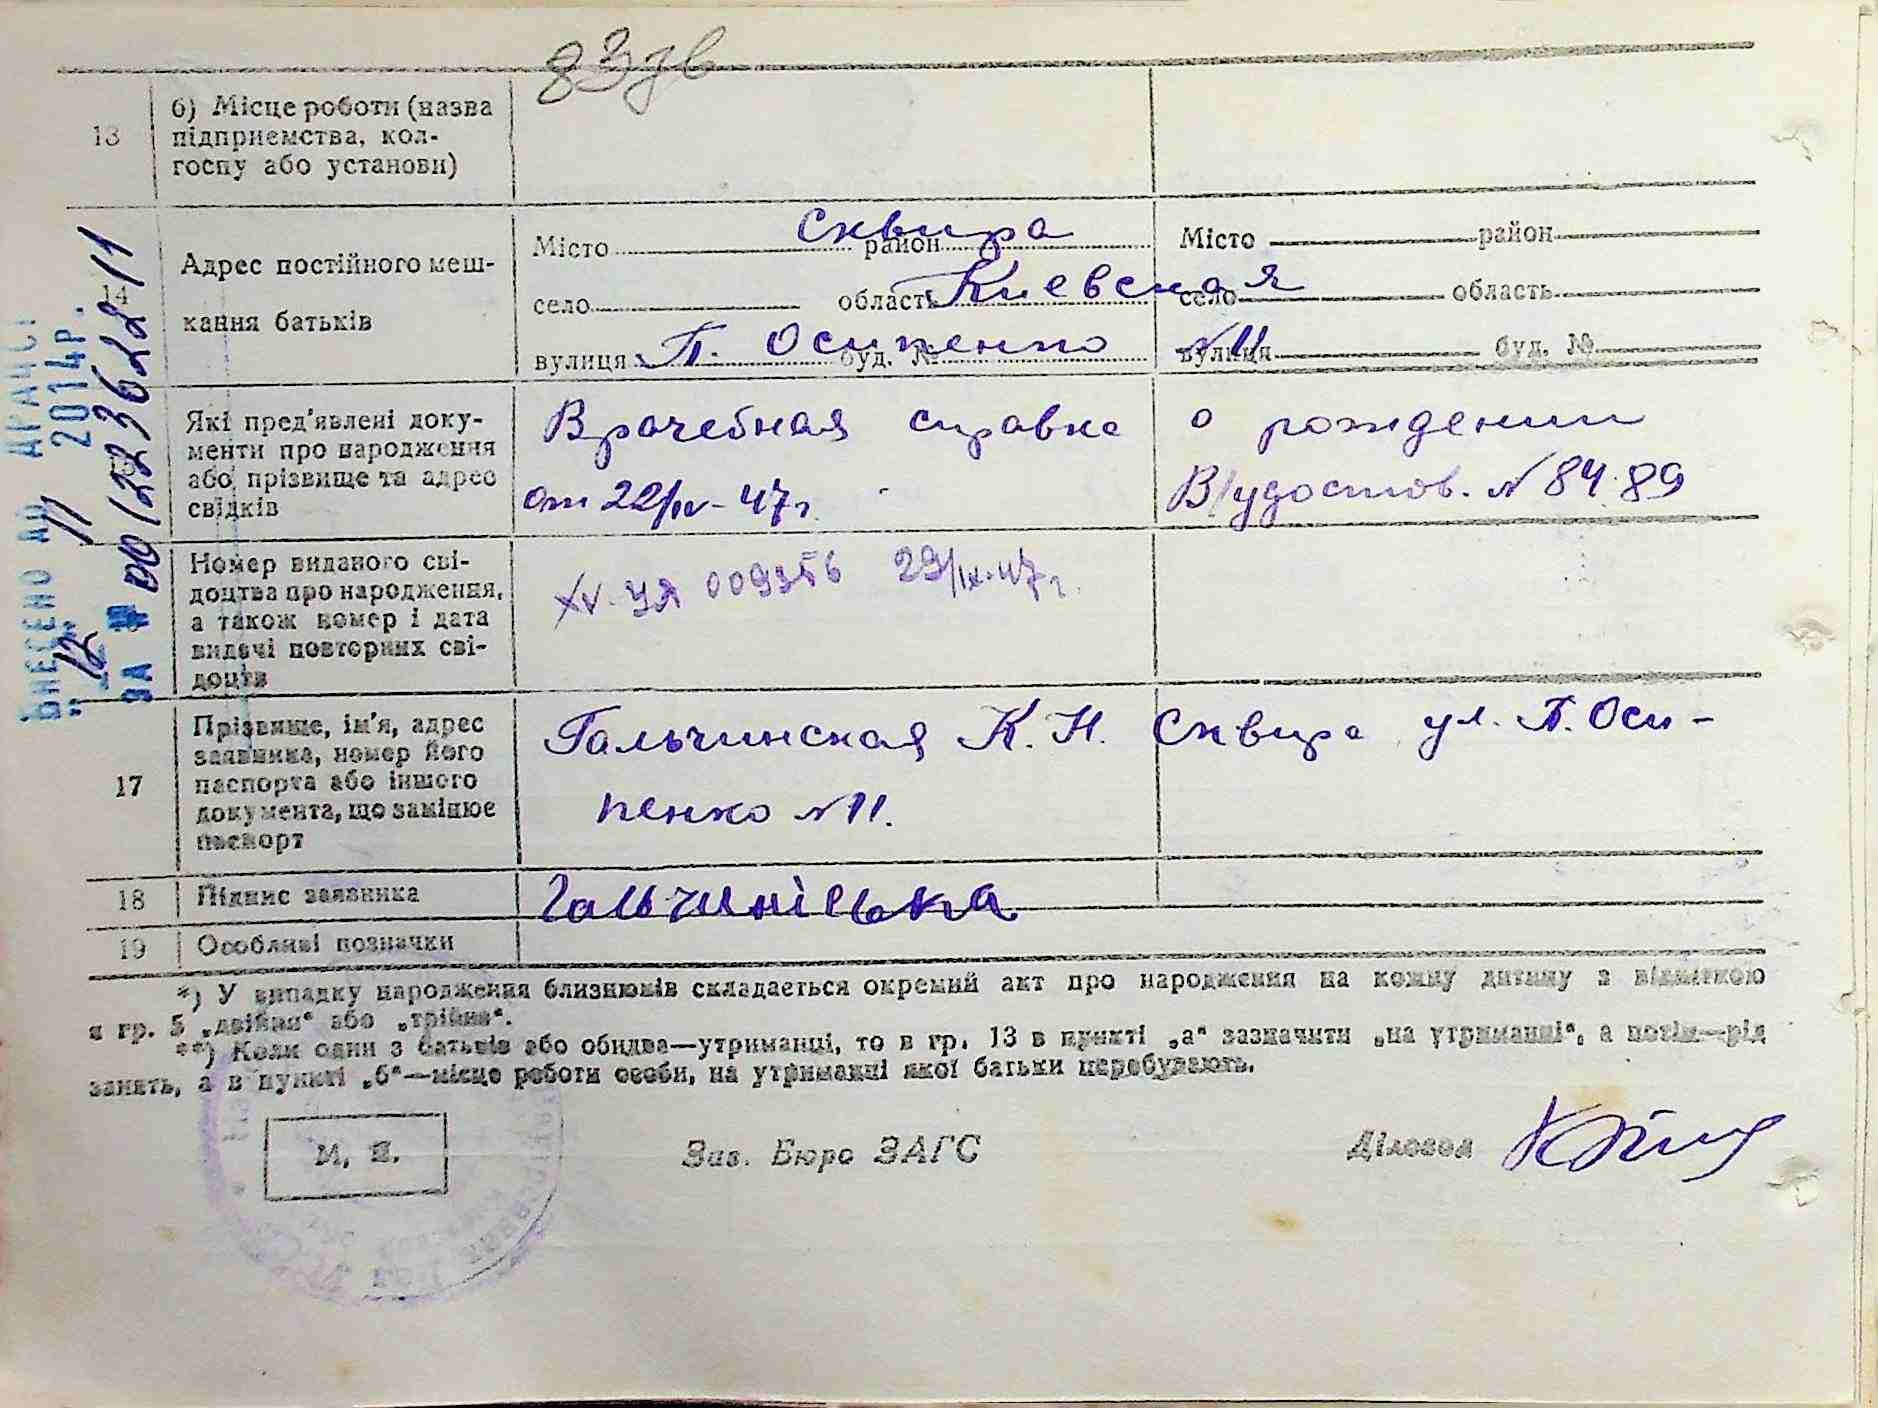 83 зв
13
б) Місце роботи (назва
підприємства, кол-
госпу або установи)
14
Адрес постійного меш-
кання батьків
Місто Сквира район
село область Киевская
вулиця П. Осипенко буд. № №11
Місто район
село область
вулиця буд. №
15
Які пред'явлені доку-
менти про народження
або прізвище та адрес
свідків
Врачебная справка о рождении
от 22/IV-47г. В/удостов. №84.89
Номер виданого сві-
доцтва про народження,
а також номер і дата
видачі повторних сві-
доцтв
XV-УЯ 009356 29/IV-47г.
17
Прізвище, ім'я, адрес
заявника, номер його
паспорта або іншого
документа, що замінює
паспорт
Гальчинская К. Н. Сквира ул. П. Оси-
пенко №11.
18
Підпис заявника
Гальчинська
19
Особливі позначки
*) У випадку народження близнюків складається окремий акт про народження на кожну дитину з відміткою
в гр. 5 „двійня" або „трійня".
**) Коли один з батьків або обидва—утриманці, то в гр. 13 в пункті „а" зазначити „на утриманні", а потім—рід
занять, а в пункті „б"—місце роботи особи, на утриманці якої батьки перебувають.
М. П.
Зав. Бюро ЗАГС
Діловод
ВНЕСЕНО ДО ДРАЦСГ
"12" 11 2014р.
ЗА № 00122362211